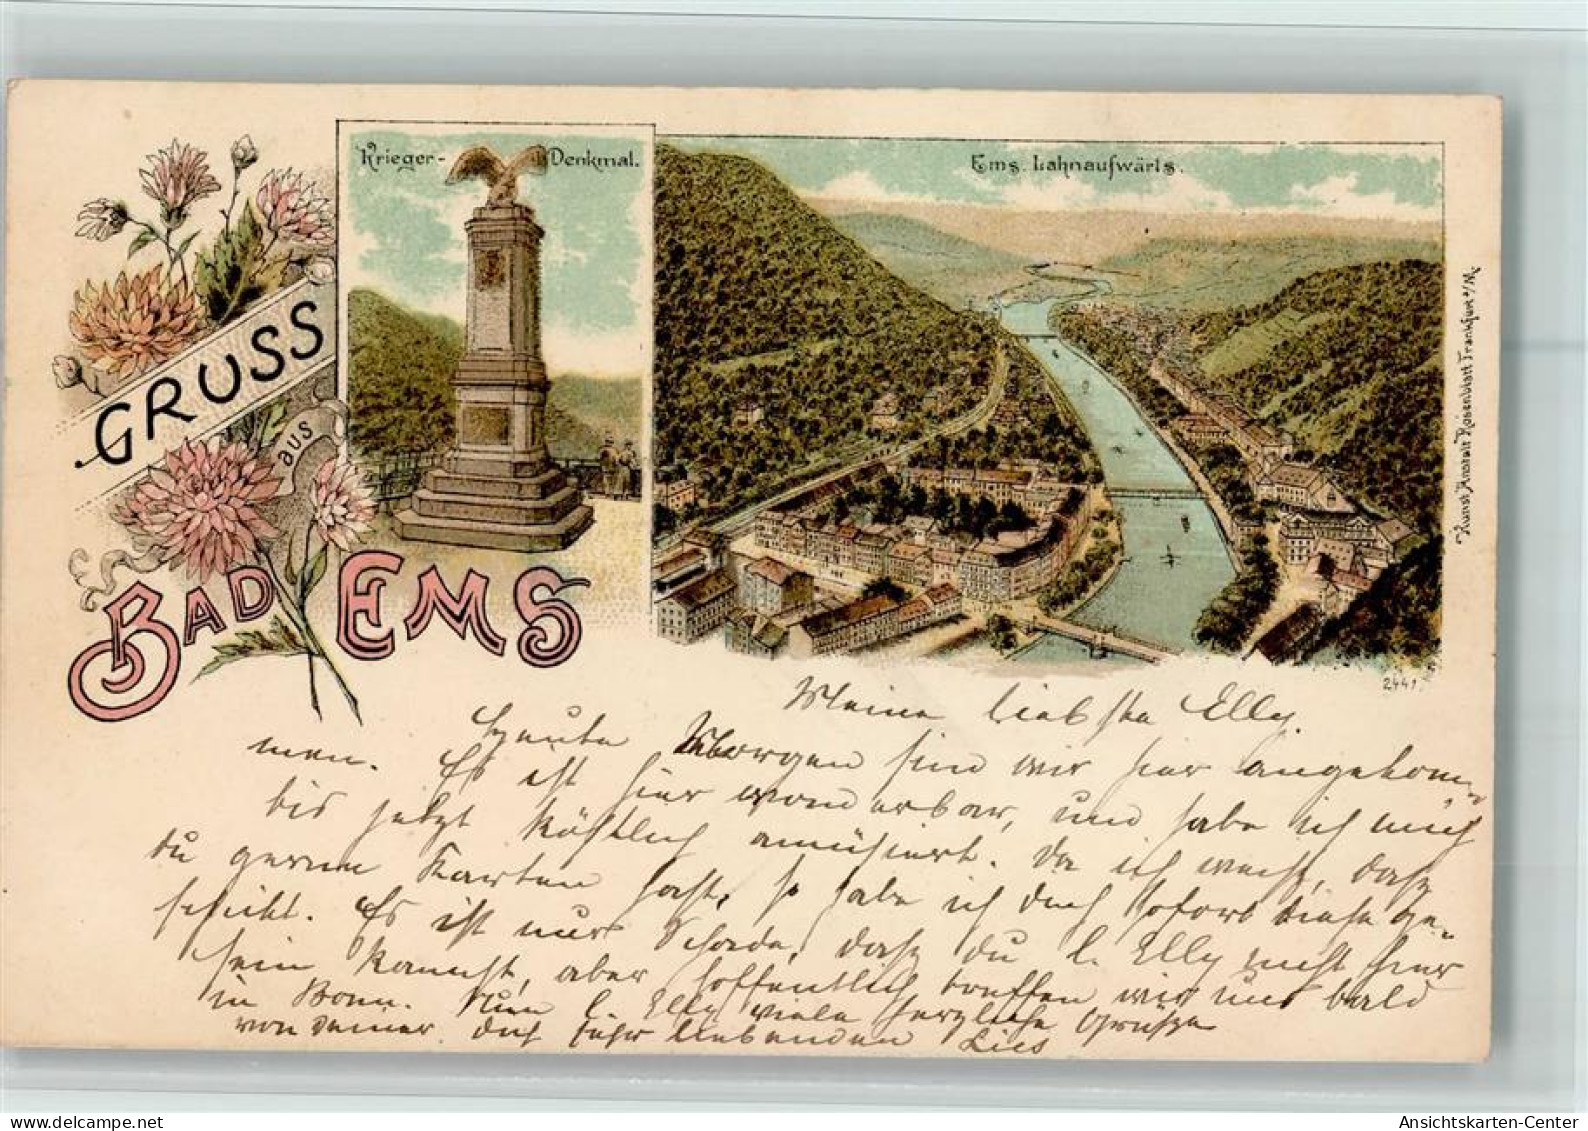 Krieger- Denkmal.
Ems. Lahnaufwärts.
GRUSS
aus
BAD EMS
Kunst Anstalt Rosenblatt Frankfurt a/M.
2441.
Meine liebste Elly.
Heute Morgen sind wir hier angekom-
men. Es ist hier wonderbar, und habe ich mich
bis jetzt köstlich amüsiert. Da ich weiß, daß
du gerne Karten hast, so habe ich dich sofort diese ge-
schickt. Es ist nur Schade, daß du l. Elly nicht hier
sein kannst, aber hoffentlich treffen wir uns bald
in Bonn. Nun l. Elly viele herzliche Grüße
von deiner dich sehr liebenden Lies
Ansichtskarten-Center